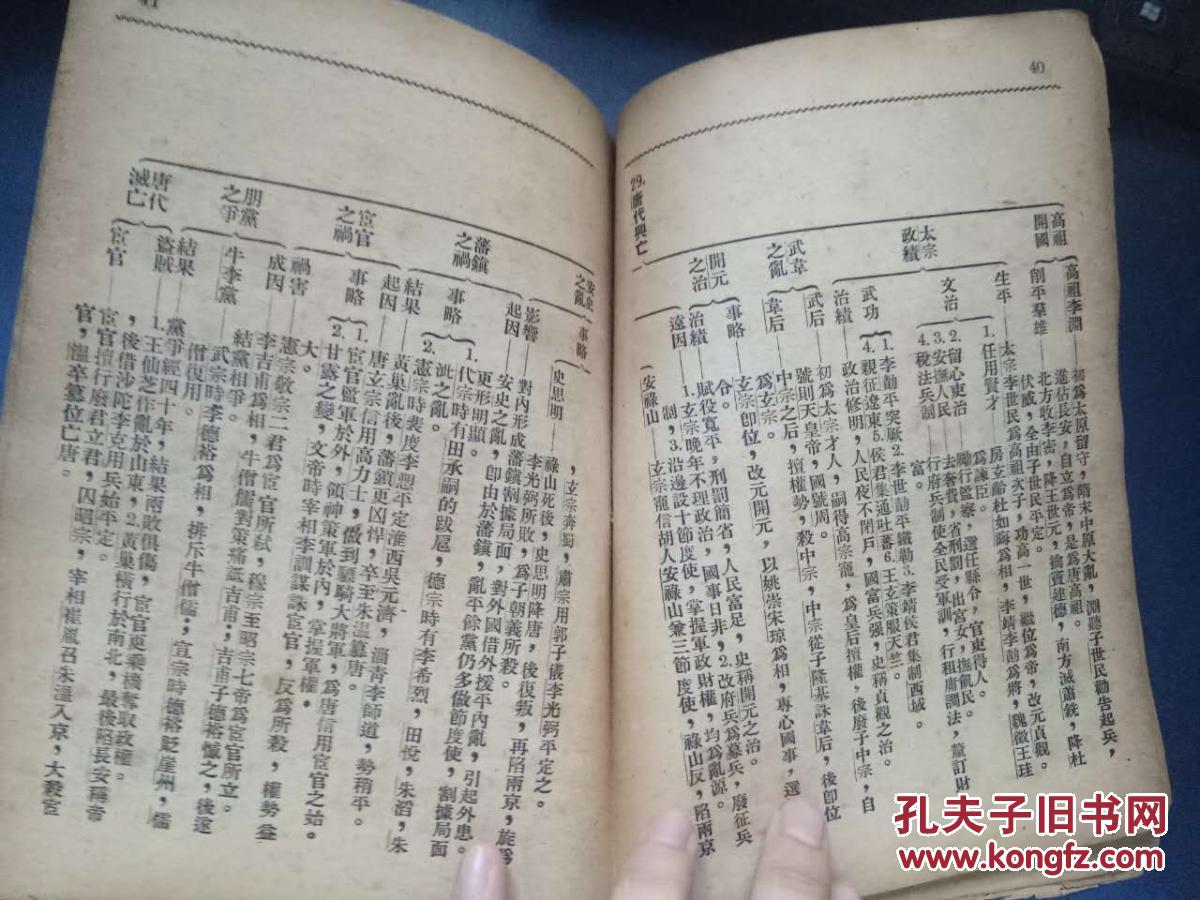 40
29.唐代興亡
高祖開國
高祖李淵——初爲太原留守,隋末中原大亂,淵聽子世民勸告起兵,
進佔長安,自立爲帝,是爲唐高祖。
削平羣雄
北方收李密,降王世充,擒竇建德,南方滅蕭銑,降杜
伏威,全由子世民平定。
太宗政績
生平——太宗李世民爲高祖次子,功高一世,繼位爲帝,改元貞觀。
文治
1.任用賢才
房玄齡杜如晦爲相,李靖李勣爲將,魏徵王珪
爲諫臣。
2.留心吏治
勵行監察,選任縣令,官吏得人。
3.安撫人民
去奢費,省刑罰,出宮女,撫飢民。
4.稅法兵制
行府兵制使全民受軍訓,行租庸調法,釐訂財
富。
武功
1.李勣平突厥2.李世勣平鐵勒3.李靖侯君集制西域。
4.親征遼東5.侯君集通吐蕃6.王玄策服天竺。
治績——政治修明,人民夜不閉戶,國富兵强,史稱貞觀之治。
武韋之亂
武后——初爲太宗才人,嗣得高宗寵,爲皇后擅權,後廢子中宗,自
號則天皇帝,國號周。
韋后——中宗之后,擅權勢,殺中宗,中宗從子隆基誅韋后,後卽位
爲玄宗。
開元之治
事略
玄宗卽位,改元開元,以姚崇宋璟爲相,專心國事,選
令。
治績——賦役寬平,刑罰簡省,人民富足,史稱開元之治。
遠因
1.玄宗晚年不理政治,國事日非,2.改府兵爲募兵,廢征兵
制,3.沿邊設十節度使,掌握軍政財權,均爲亂源。
安史之亂
事略
安祿山——玄宗寵信胡人安祿山兼三節度使,祿山反,陷兩京
41
,玄宗奔蜀,肅宗用郭子儀李光弼平定之。
史思明——祿山死後,史思明降唐,後復叛,再陷兩京,旋爲
李光弼所敗,爲子朝義所殺。
影響——對內形成藩鎭割據局面,對外國借外援平內亂,引起外患。
藩鎭之禍
起因——安史之亂,卽由於藩鎭,亂平餘黨仍多做節度使,割據局面
更形明顯。
事略
1.代宗時有田承嗣的跋扈,德宗時有李希烈,田悅,朱滔,朱
泚之亂。
2.憲宗時裴度李愬平定淮西吳元濟,淄靑李師道,勢稍平。
結果——黃巢亂後,藩鎭更凶悍,卒至朱溫篡唐。
宦官之禍
起因——唐玄宗信用高力士,做到驃騎大將軍,爲唐信用宦官之始。
事略
1.宦官監軍於外,領神策軍於內,掌握軍權。
2.甘露之變,文帝時宰相李訓謀誅宦官,反爲所殺,權勢益
大。
禍害——憲宗敬宗二君爲宦官所弒,穆宗至昭宗七帝爲宦官所立。
朋黨之爭
成因——李吉甫爲相,牛僧儒對策痛詆吉甫,吉甫子德裕憾之,後遂
結黨相爭。
牛李黨
武宗時李德裕爲相,排斥牛僧儒,宣宗時德裕貶崖州,儒
僧復用。
結果——黨爭經四十年,結果兩敗俱傷,宦官更乘機奪取政權。
唐代滅亡
盜賊
1.王仙芝作亂於山東,2.黃巢橫行於南北,最後陷長安稱帝
,後借沙陀李克用兵始平定。
宦官
宦官擅行廢君立君,囚昭宗,宰相崔胤召朱溫入京,大殺宦
官,溫卒篡位亡唐。
孔夫子旧书网
www.kongfz.com